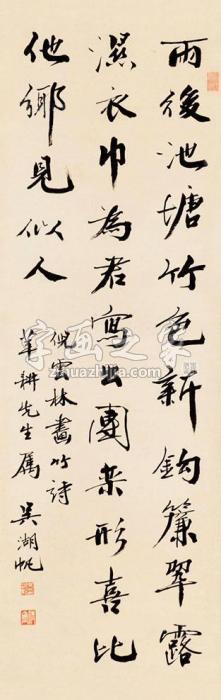 雨後池塘竹色新鈎簾翠露
濕衣巾為君寫出團栾形喜比
他鄉見似人
倪雲林畫竹詩
耕先生屬
吳湖帆
字画之家